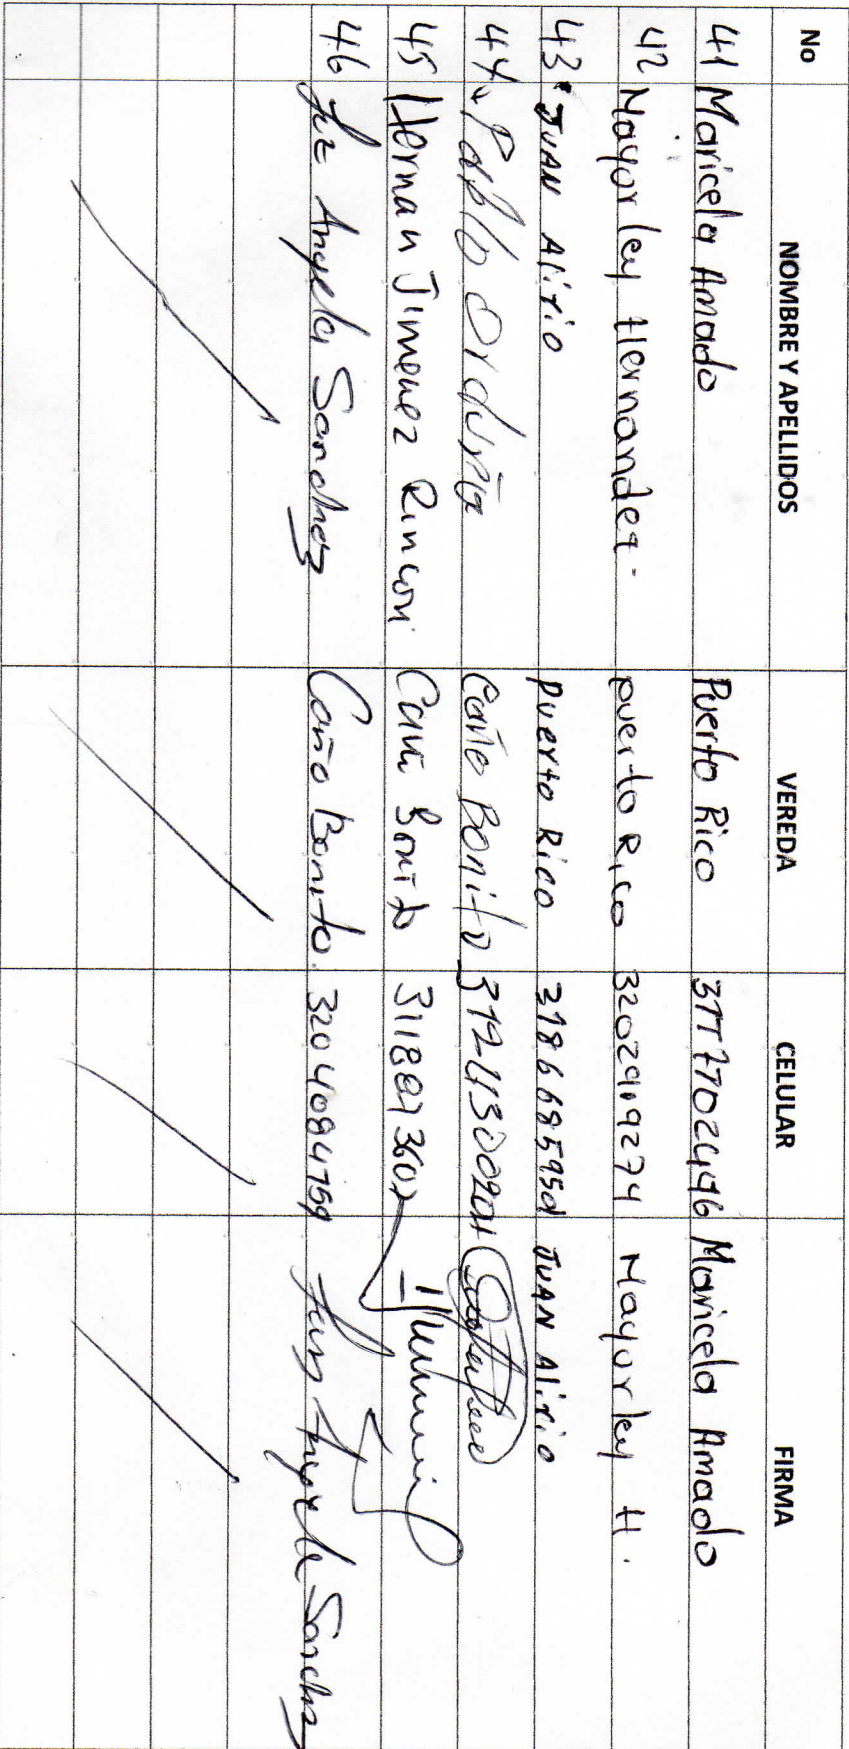 No NOMBRE Y APELLIDOS VEREDA CELULAR FIRMA
41 Maricela Amado Puerto Rico Maricela Amado
42 Mayorley Hernandez. puerto Rico 3202919274 Mayorley H.
43. JUAN Alirio Puerto Rico JUAN Alirio
44. Pablo Orduña Caño Bonito
45 Hernan Jimenez Rincon Bonito
46 Luz Angela Sanchez Caño Bonito. 3204084759 Luz Angela Sanchez